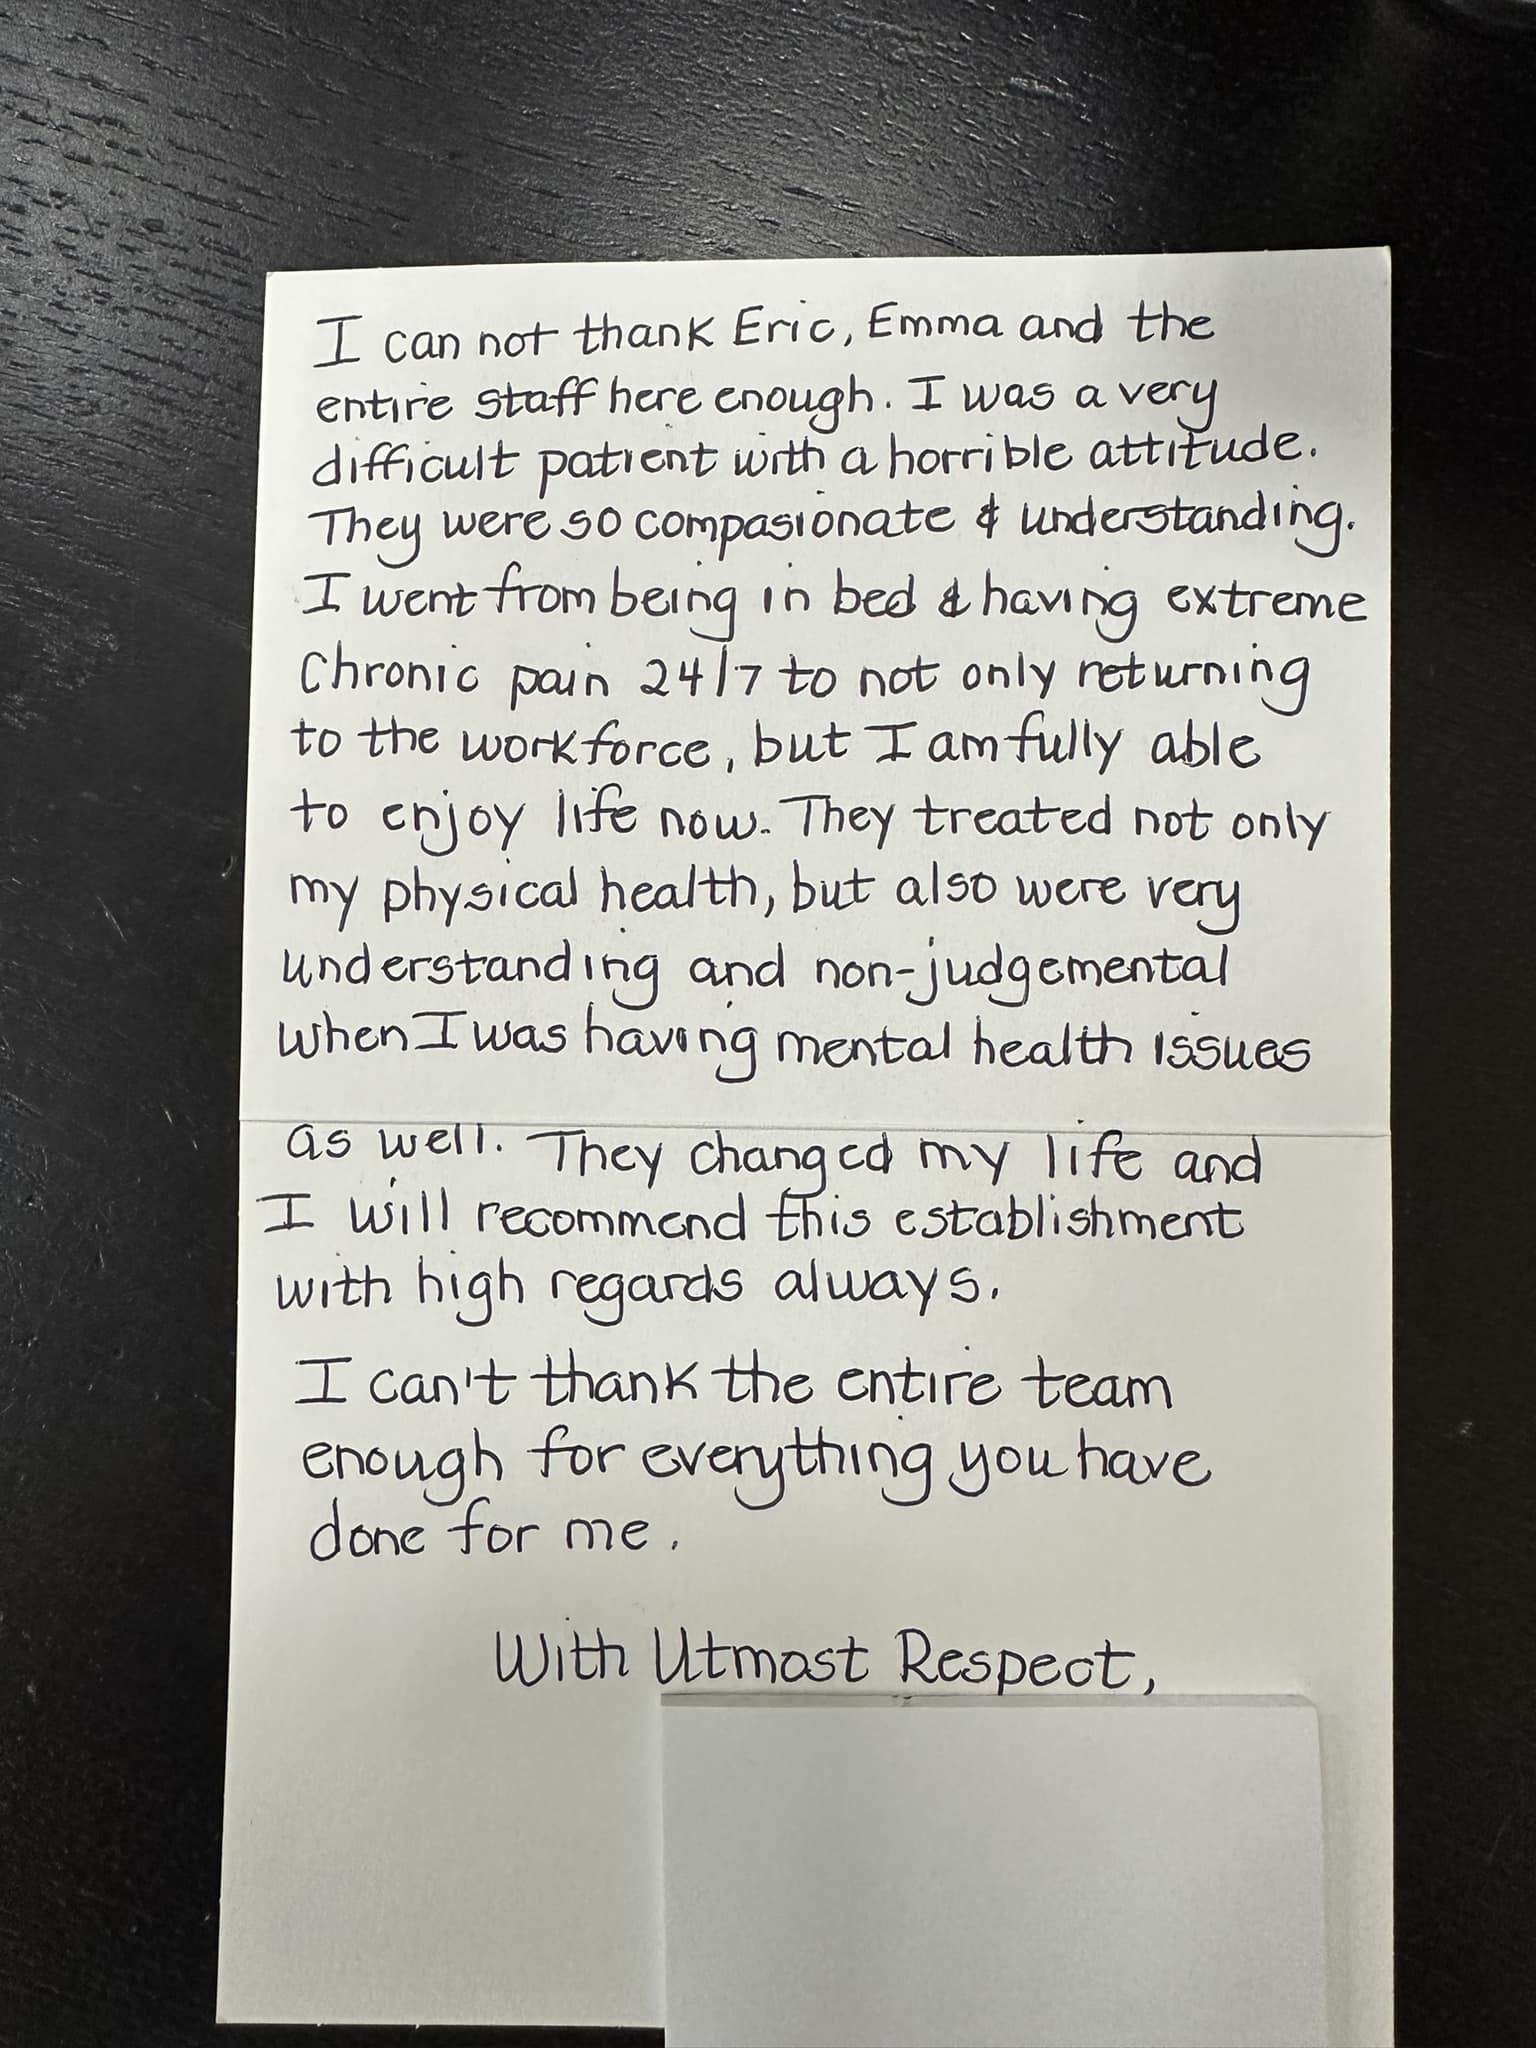 I can not thank Eric, Emma and the
entire staff here enough. I was a very
difficult patient with a horrible attitude.
They were so compasionate & understanding.
I went from being in bed & having extreme
Chronic pain 24/7 to not only returning
to the workforce, but I am fully able
to enjoy life now. They treated not only
my physical health, but also were very
understanding and non-judgemental
when I was having mental health issues
as well. They changed my life and
I will recommend this establishment
with high regards always.
I can't thank the entire team
enough for everything you have
done for me.
With Utmost Respect,